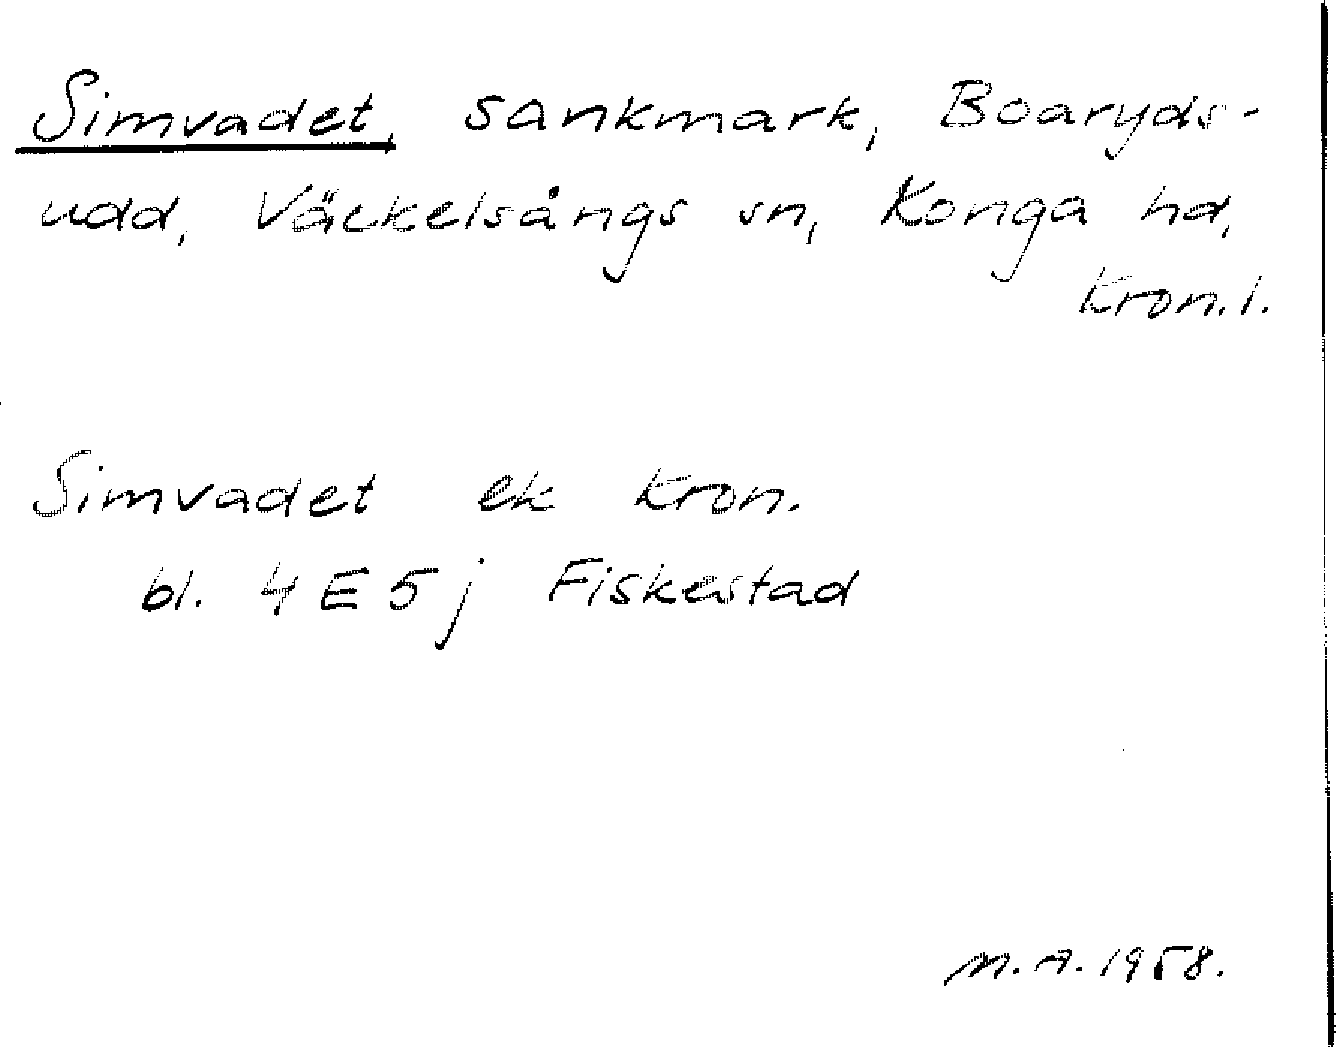 Simvadet, sankmark, Boaryds-
udd, Väckelsångs sn, Konga hd,
Kron.l.
Simvadet ek Kron.
bl. 4 E 5 j Fiskestad
M.A. 1958.